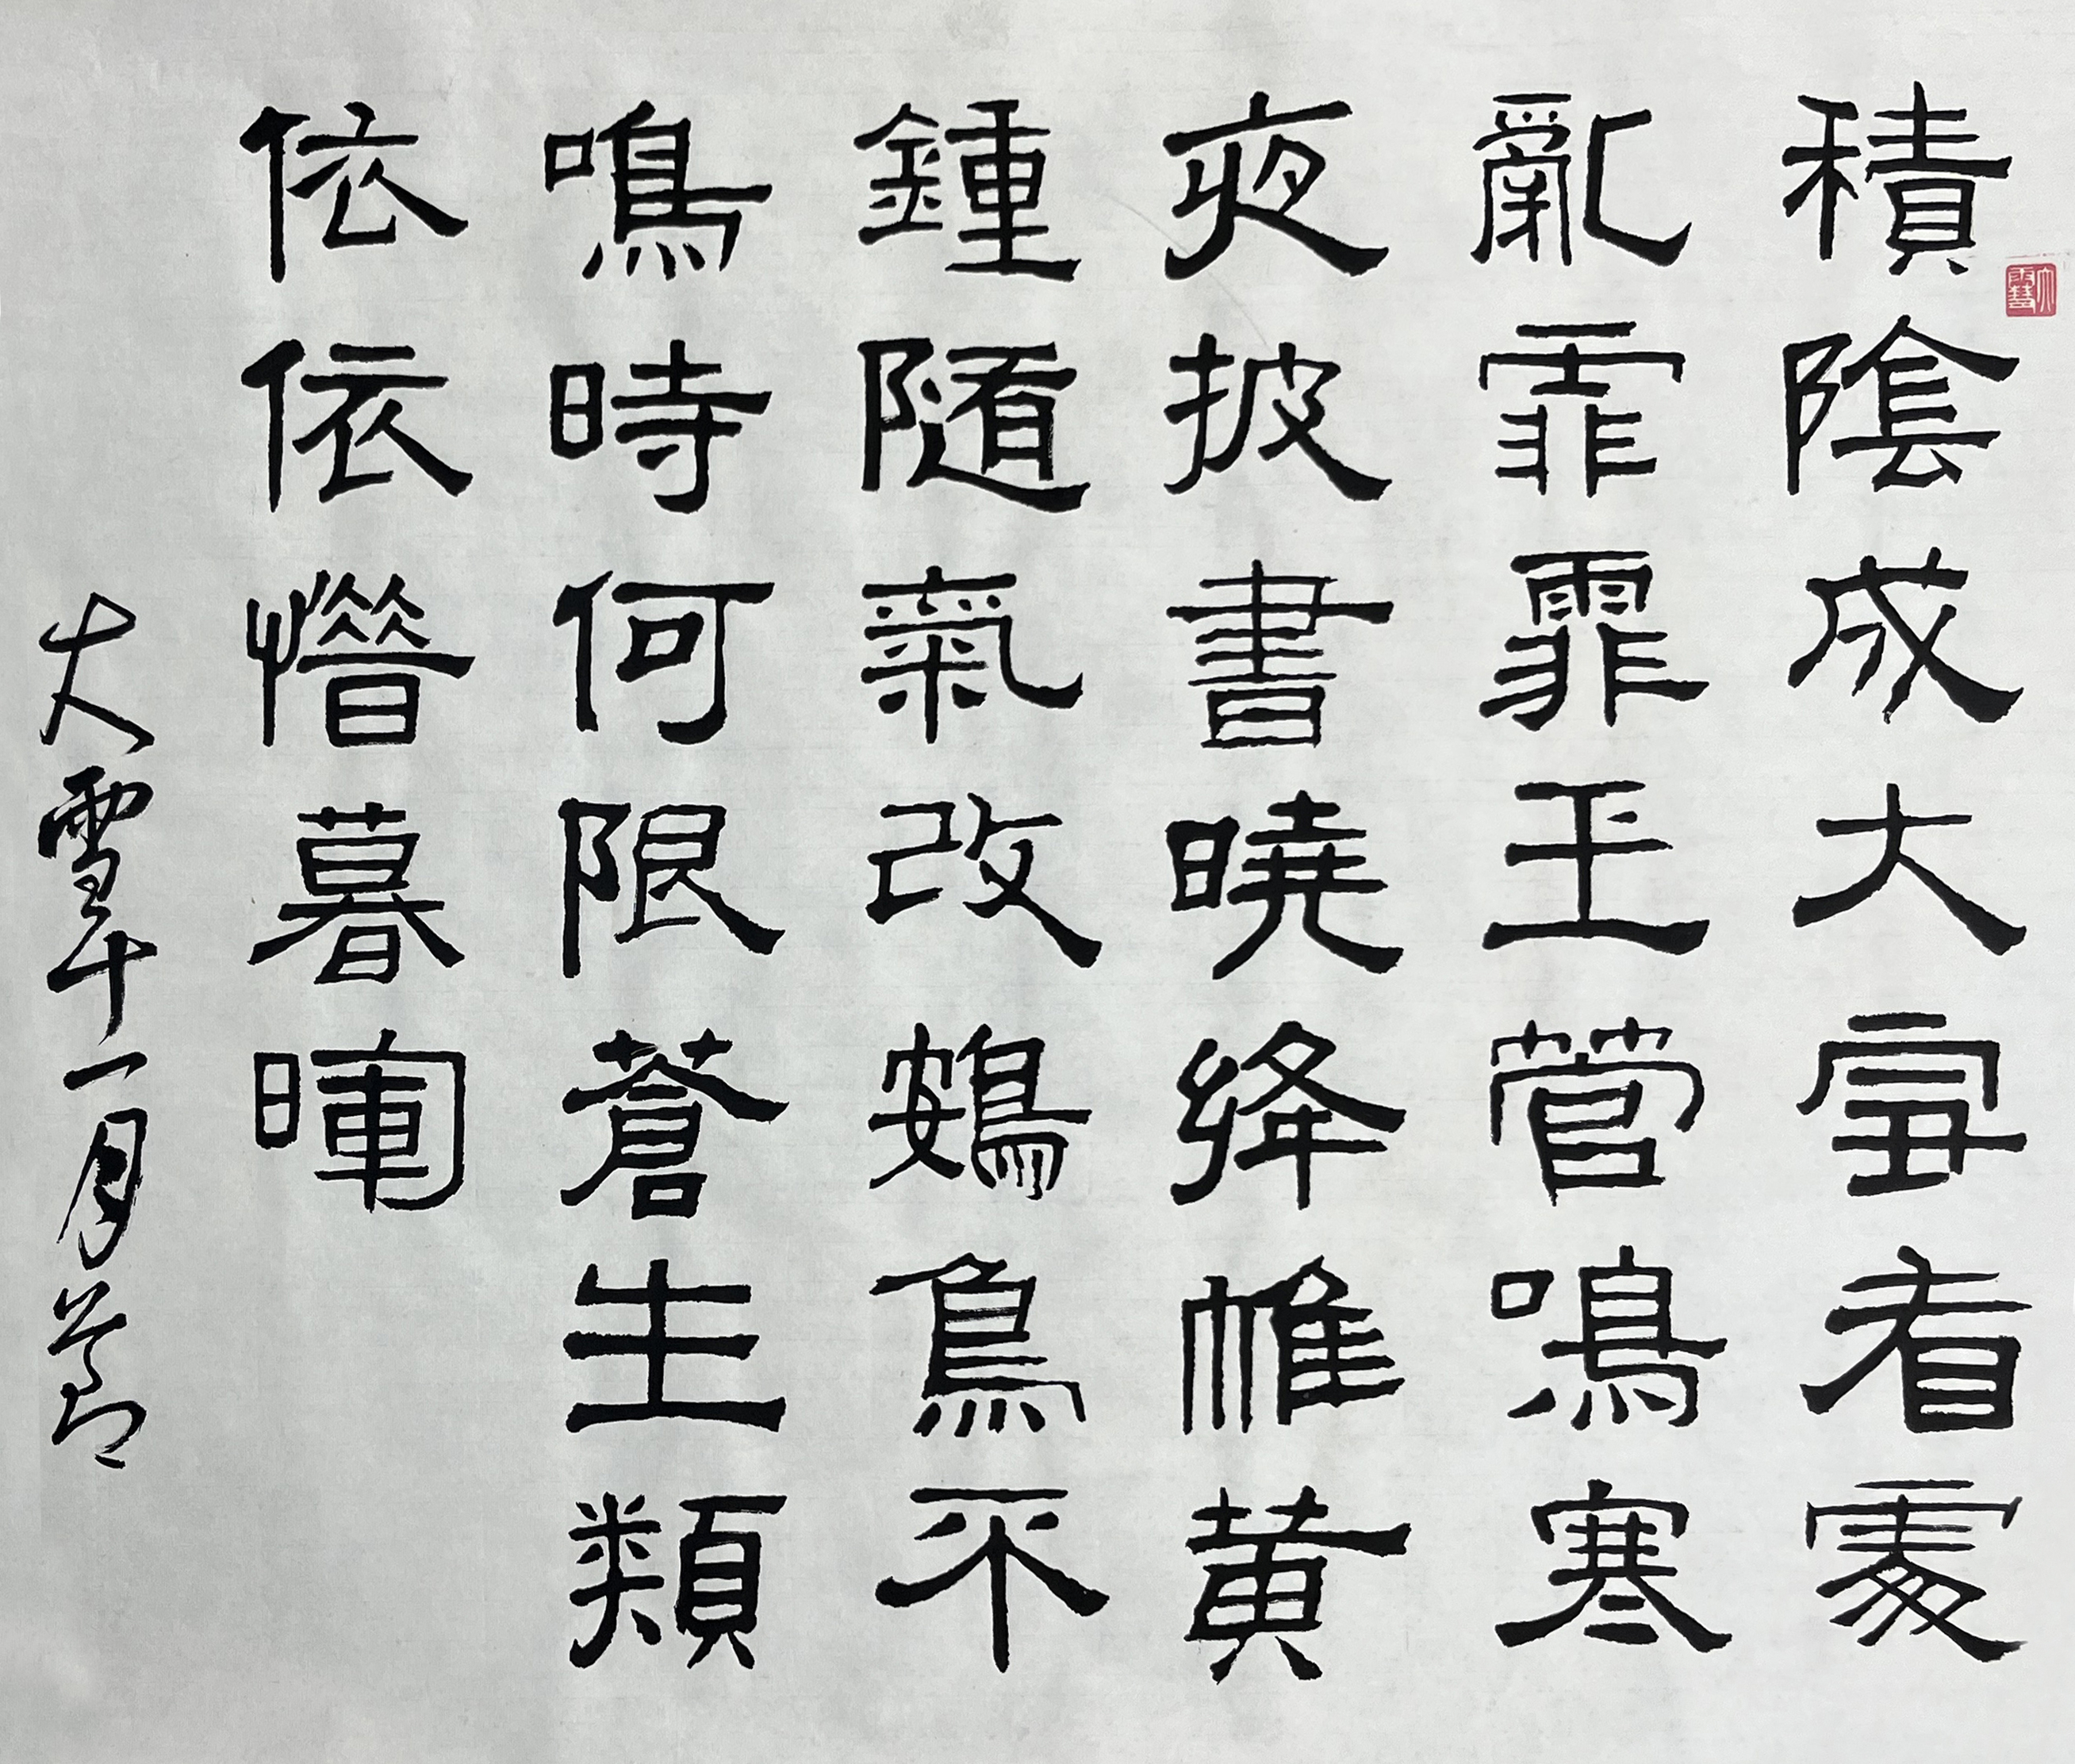 大雪
積陰成大雪看處
亂霏霏玉管鳴寒
夜披書曉絳帷黃
鍾隨氣改鷃鳥不
鳴時何限蒼生類
依依惜暮暉
大雪十一月節